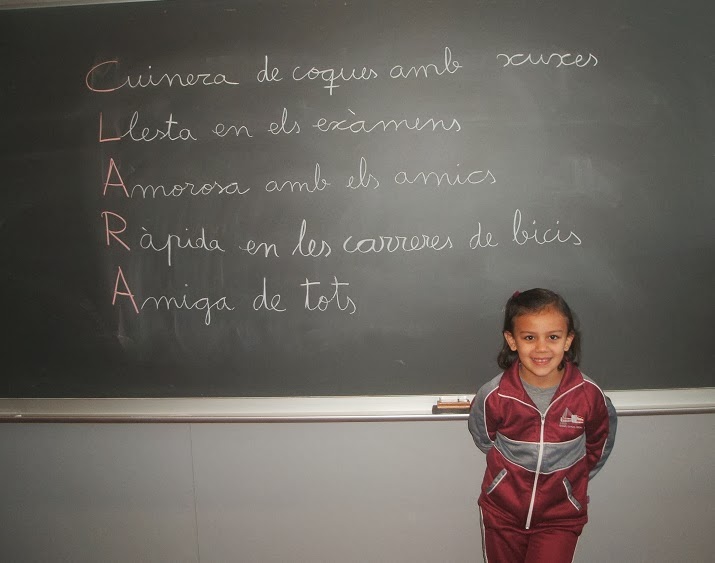 Cuinera de coques amb xuxes
Llesta en els exàmens
Amorosa amb els amics
Ràpida en les carreres de bicis
Amiga de tots